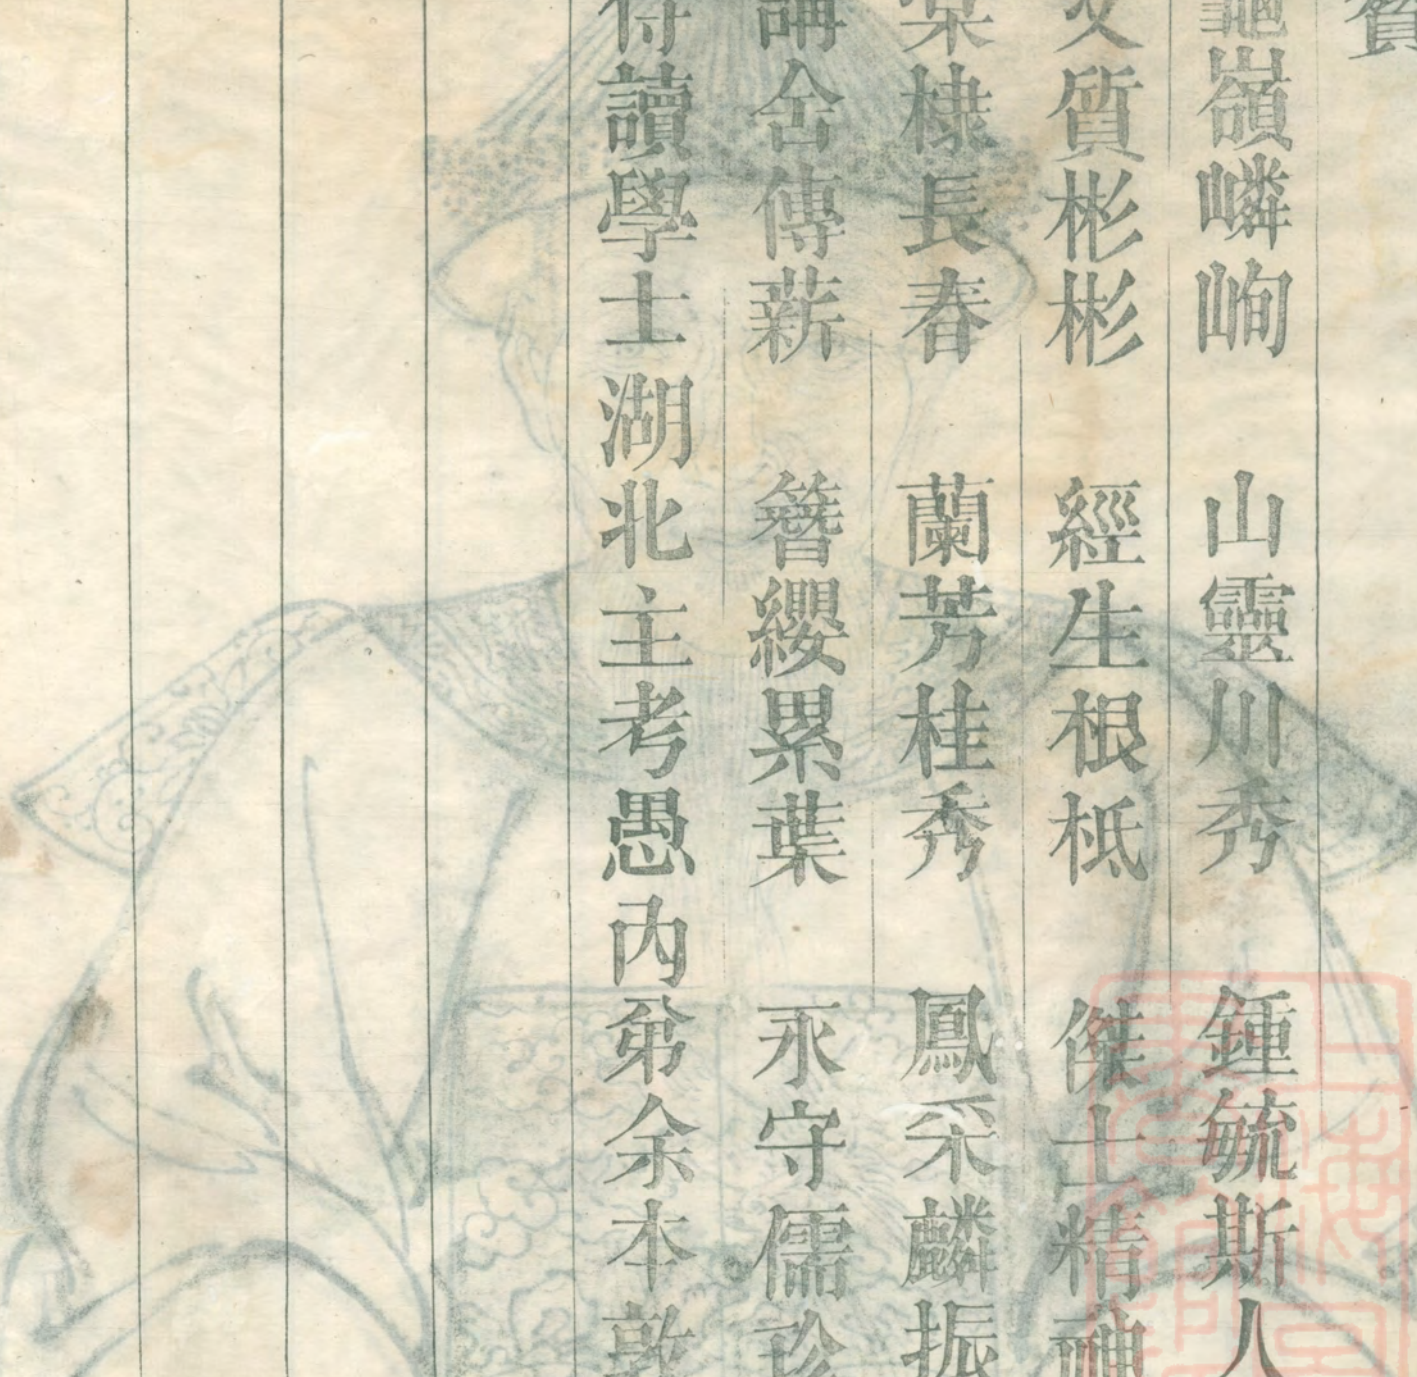 龜嶺嶙峋 山靈川秀 鍾毓斯人
文質彬彬 經生根柢 傑士精神
棠棣長春 蘭芳桂秀 鳳采麟振
講舍傳薪 簪纓累葉 永守儒珍
侍讀學士湖北主考愚內弟余本敦